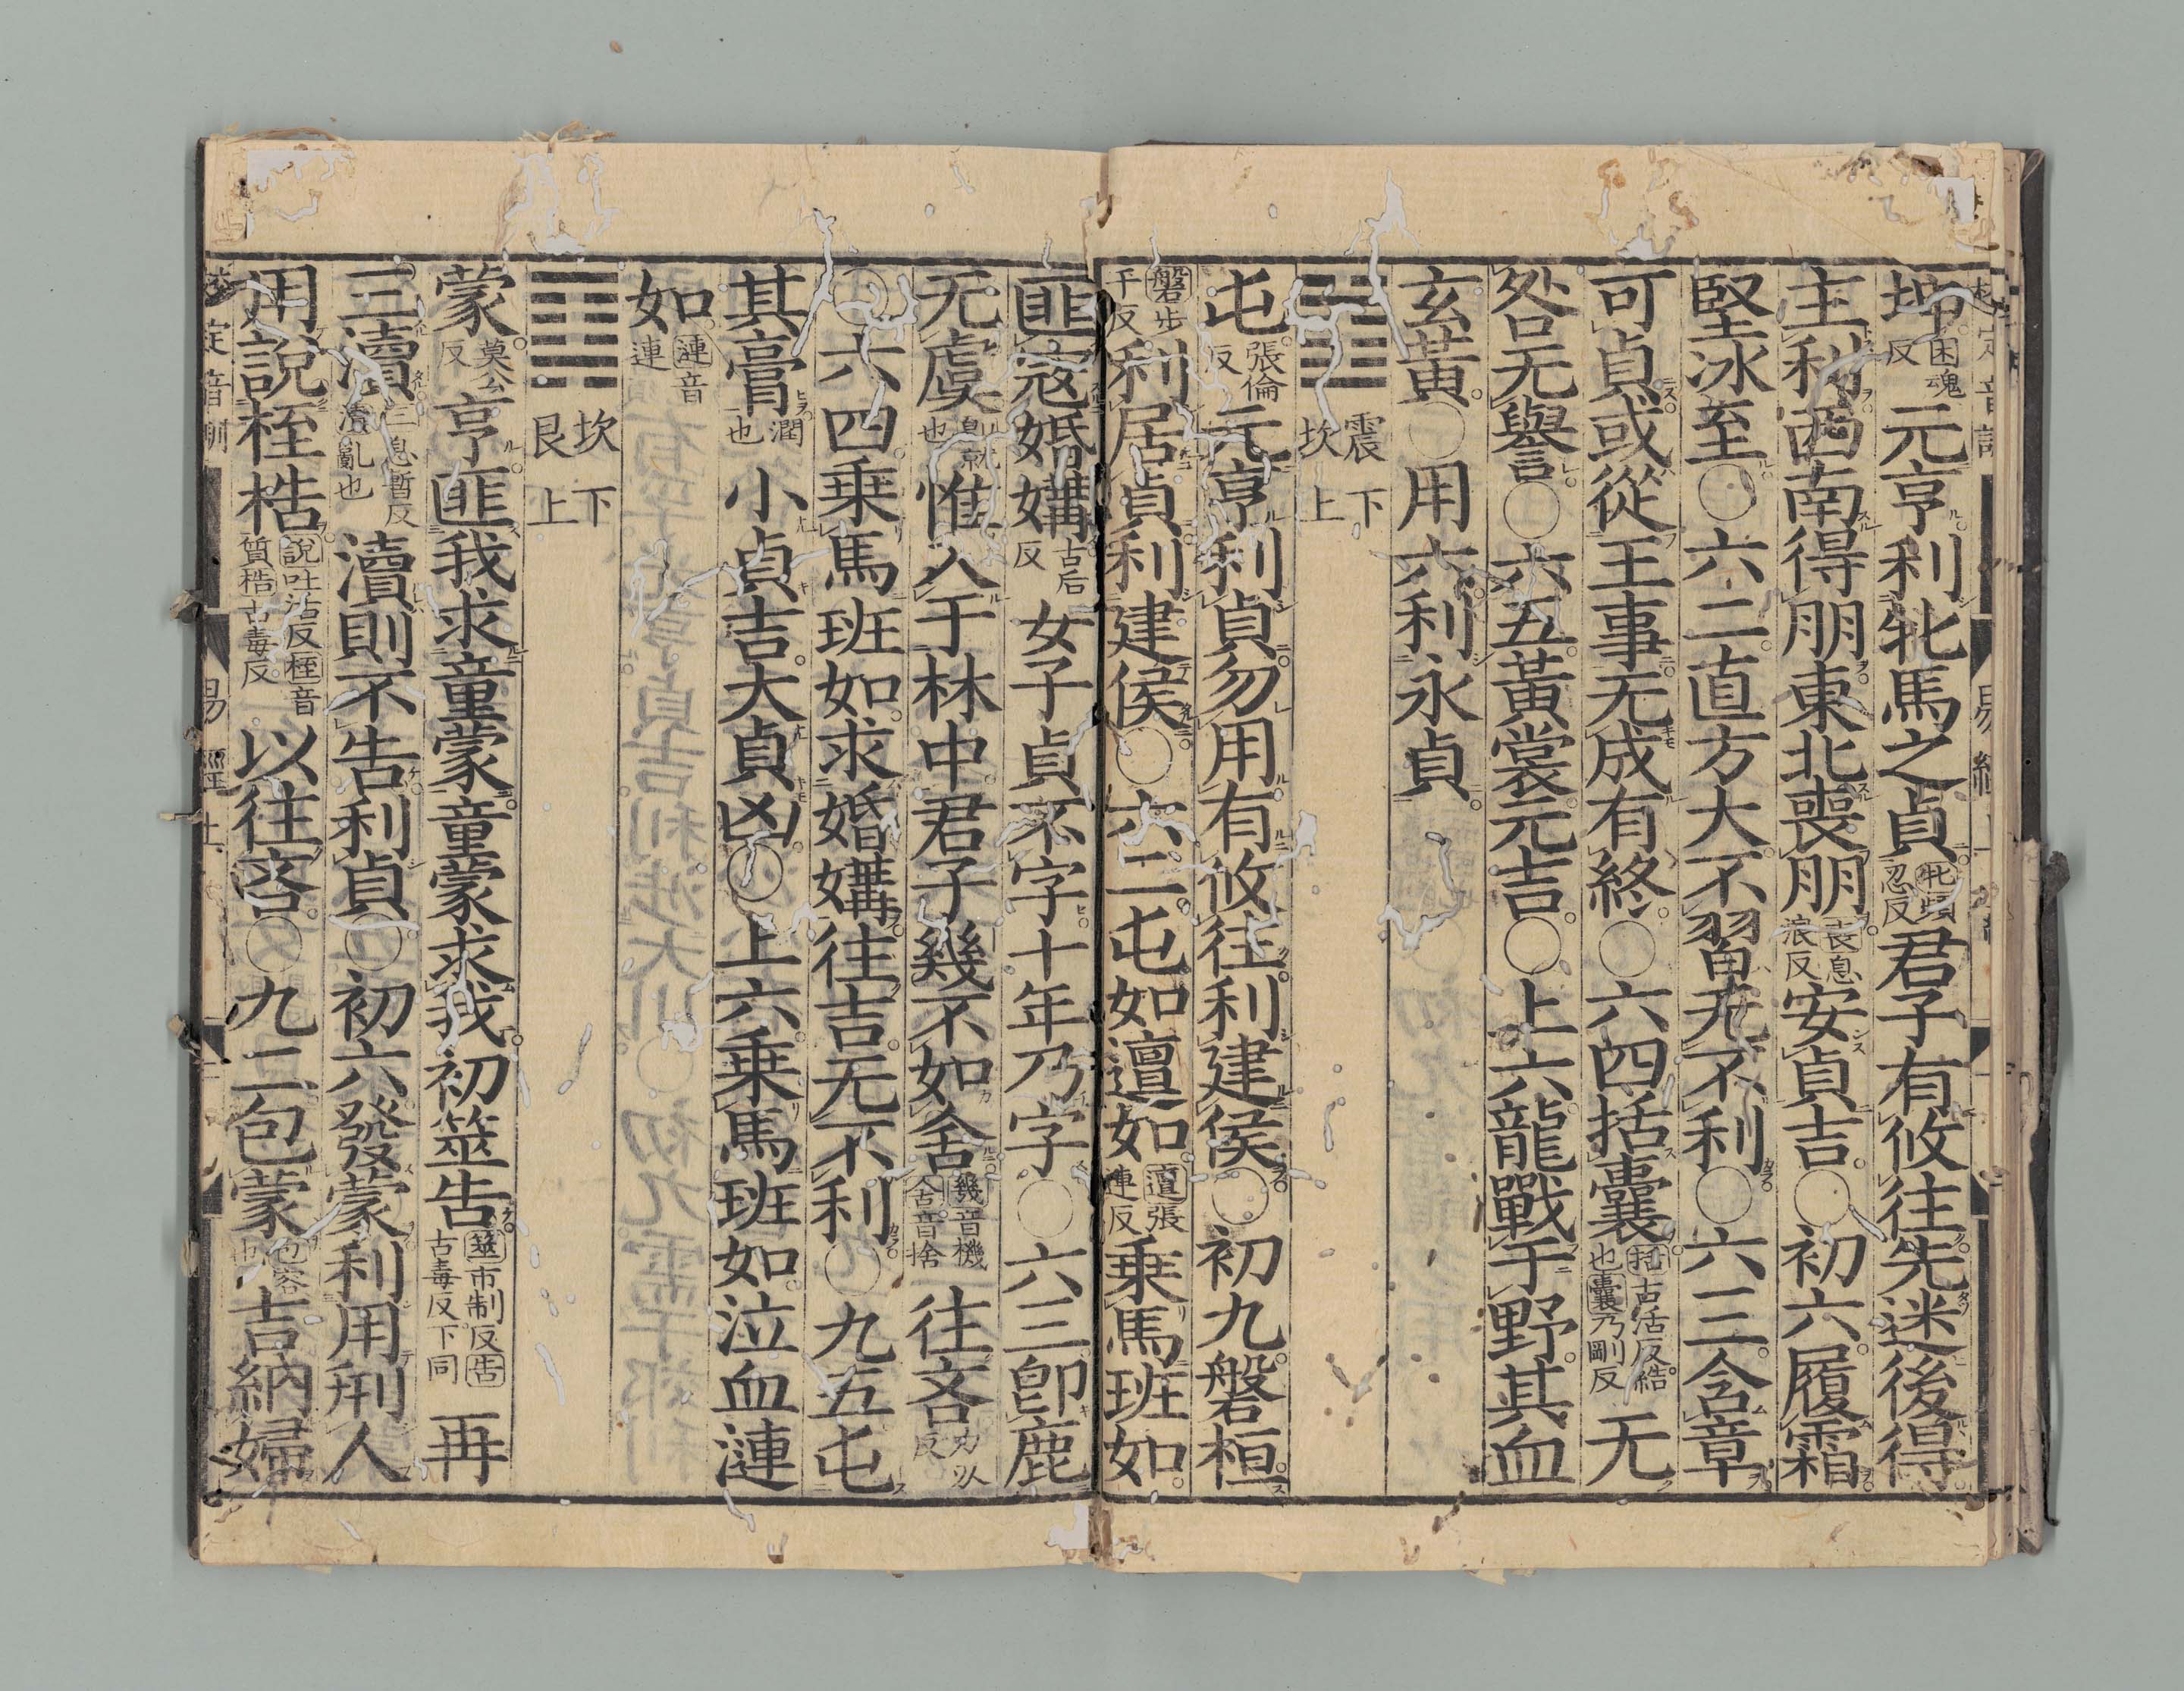 坤困魂反元亨利牝馬之貞牝頻忍反君子有攸往先迷後得
主利西南得朋東北喪朋喪息浪反安貞吉○初六履霜
堅冰至○六二直方大不習无不利○六三含章
可貞或從王事无成有終○六四括囊括古活反結也囊乃剛反无
咎无譽○六五黃裳元吉○上六龍戰于野其血
玄黃○用六利永貞
震下坎上
屯張倫反元亨利貞勿用有攸往利建侯○初九磐桓
磐步干反利居貞利建侯○六二屯如邅如邅張連反乘馬班如
匪寇婚媾古后反女子貞不字十年乃字○六三卽鹿
无虞卽就也惟入于林中君子幾不如舍幾音機舍音捨往吝力刃反
○六四乘馬班如求婚媾往吉无不利○九五屯
其膏膏潤也小貞吉大貞凶○上六乘馬班如泣血漣
如漣音連
坎下艮上
蒙莫公反亨匪我求童蒙童蒙求我初筮告筮市制反告古毒反下同再
三瀆三息暫反瀆亂也瀆則不告利貞○初六發蒙利用刑人
用說桎梏說吐活反桎音質梏古毒反以往吝○九二包蒙包容也吉納婦
校定音訓
易經上